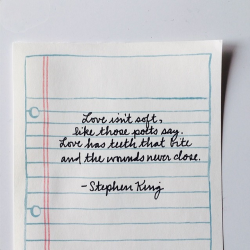 Love isn't soft,
like those poets say.
Love has teeth that bite
and the wounds never close.
-Stephen King